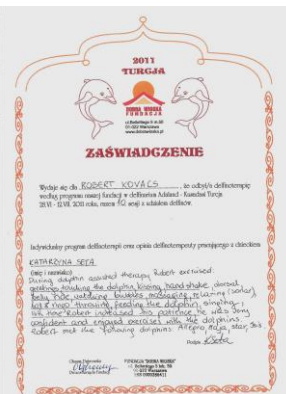 2011
TURCJA
DOBRA WIOSKA
FUNDACJA
01-022 Warszawa
ZAŚWIADCZENIE
Wydaje się dla ROBERT KOVACS, że odbył/a delfinoterapię
według programu naszej fundacji w delfinarium Adaland - Kusadasi Turcja
w 2011 roku, razem 10 sesji z udziałem delfinów.
Indywidualny program delfinoterapii oraz opinia delfinoterapeuty pracującego z dzieckiem
KATARZYNA SETA
(imię i nazwisko)
During dolphin assisted therapy Robert exercised:
greetings, touching the dolphin, kissing, hand shake, dorsal,
belly ride, watching, massaging, relaxing (sonar)
throwing, feeding the dolphin, singing,
time Robert increased his patience, he was
confident and engaged exercises with the dolphins.
Robert met the following dolphins: Allegra, Maja, star,
FUNDACJA "DOBRA WIOSKA"
01-022 Warszawa